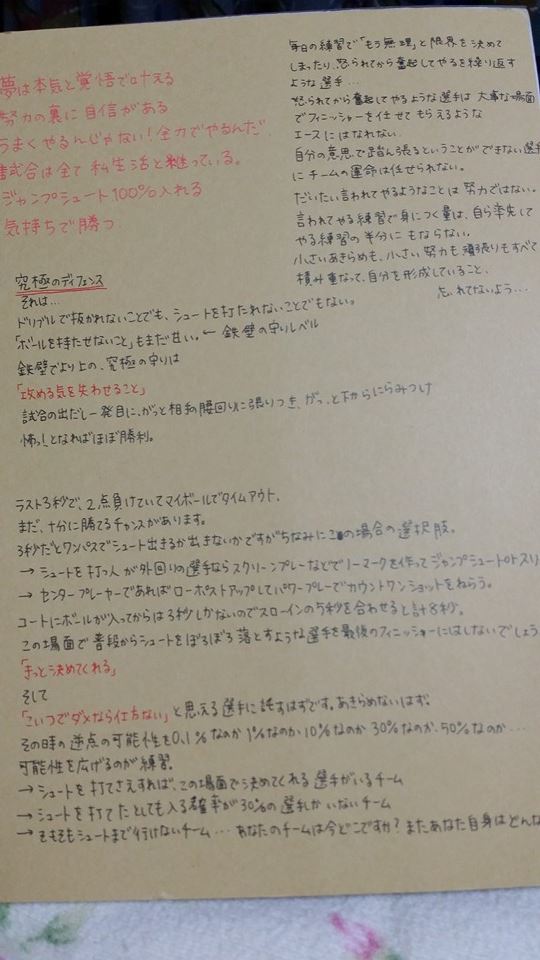 夢は本気と覚悟で叶える
努力の裏に自信がある
うまくやるんじゃない!全力でやるんだ.
試合は全て私生活と継っている。
ジャンプシュート100%入れる
気持ちで勝つ
毎日の練習で「もう無理」と限界を決めて
しまったり、怒られてから奮起してやるを繰り返す
ような選手...
怒られてから奮起してやるような選手は大事な場面
でフィニッシャーを任せてもらえるような
エースにはなれない.
自分の意思で踏ん張るということができない選手
にチームの運命は任せられない。
だいたい言われてやるようなことは努力ではない。
言われてやる練習で身につく量は、自ら率先して
やる練習の半分にもならない。
小さいあきらめも、小さい努力も頑張りもすべて
積み重なって、自分を形成していること、
忘れてないよう...
究極のディフェンス
それは...
ドリブルで抜かれないことでも、シュートを打たれないことでもない。
「ボールを持たせないこと」もまだ甘い。← 鉄壁の守りレベル
鉄壁でより上の、究極の守りは
「攻める気を失わせること」
試合の出だし一発目に、がっと相手の腰回りに張りつき、がっ、と下からにらみつけ
怖っ!となればほぼ勝利。
ラスト3秒で、2点負けていてマイボールでタイムアウト.
まだ、十分に勝てるチャンスがあります。
3秒だとワンパスでシュート出きるか出きないかですがちなみにこの場合の選択肢。
→ シュートを打つ人が外回りの選手ならスクリーンプレーなどでノーマークを作ってジャンプシュートorスリ
→ センタープレーヤーであればローポストアップしてパワープレーでカウントワンショットをねらう。
コートにボールが入ってからは3秒しかないのでスローインの5秒を合わせると計8秒。
この場面で普段からシュートをぽろぽろ落とすような選手を最後のフィニッシャーにはしないでしょう
「きっと決めてくれる」
そして
「こいつでダメなら仕方ない」と思える選手に託すはずです。あきらめないはず.
その時の逆点の可能性を0.1%なのか1%なのか10%なのか30%なのか、50%なのか...
可能性を広げるのが練習。
→ シュートを打てさえすれば、この場面で決めてくれる選手がいるチーム
→ シュートを打てたとしても入る確率が30%の選手しかいないチーム
→ そもそもシュートまで行けないチーム... あなたのチームは今どこですか?またあなた自身はどんな